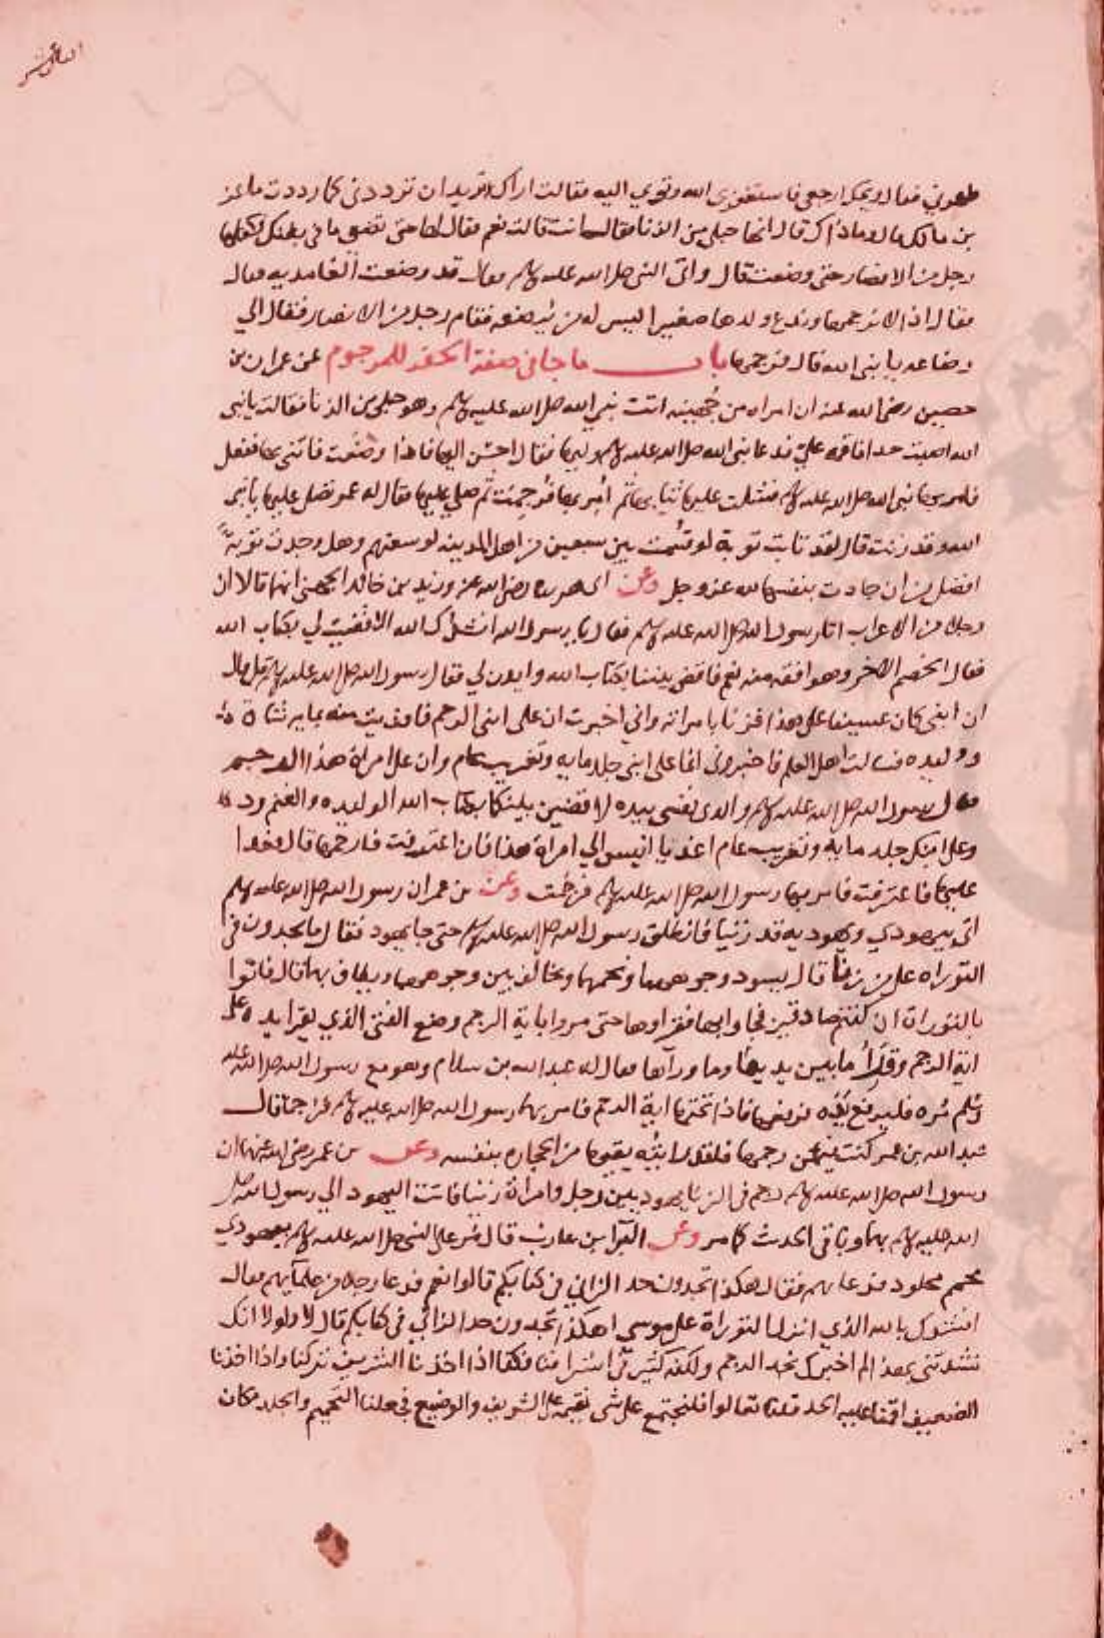 العاشر
طهرني فقال ويحك ارجعي فاستغفري الله وتوبي اليه فقالت اراك تريد ان ترددني كما رددت ماعز
بن مالك قال وما ذاك قال انها حبلى من الزنا فقال انت قالت نعم فقال لها حتى تضعي ما في بطنك فكفلها
رجل من الانصار حتى وضعت قال واتى النبي صلى الله عليه وسلم فقال قد وضعت الغامديه فقال
فقال اذا لا نرجمها وندع ولدها صغيرا ليس له من يرضعه فقام رجل من الانصار فقال الي
رضاعه يا نبي الله قال فرجمها باب ما جا في صفة الحفر للمرجوم عن عمران بن
حصين رضي الله عنه ان امراه من جهينه اتت نبي الله صلى الله عليه وسلم وهي حبلى من الزنا فقالت يا نبي
الله اصبت حدا فاقمه علي فدعا نبي الله صلى الله عليه وسلم وليها فقال احسن اليها فاذا وضعت فاتني بها ففعل
فامر بها نبي الله صلى الله عليه وسلم فشكت عليها ثيابها ثم امر بها فرجمت ثم صلى عليها فقال له عمر تصلي عليها يا نبي
الله وقد زنت قال لقد تابت توبة لو قسمت بين سبعين من اهل المدينه لوسعتهم وهل وجدت توبة
افضل من ان جادت بنفسها لله عز وجل وعن ابي هريره رضي الله عنه وزيد بن خالد الجهني انهما قالا ان
رجلا من الاعراب اتا رسول الله صلى الله عليه وسلم فقال يا رسول الله انشدك الله الا قضيت لي بكتاب الله
فقال الخصم الاخر وهو افقه منه نعم فاقض بيننا بكتاب الله وايذن لي فقال رسول الله صلى الله عليه وسلم قل قال
ان ابني كان عسيفا على هذا فزنا بامراته واني اخبرت ان على ابني الرجم فافتديت منه بمايه شاة
ووليده فسالت اهل العلم فاخبروني انما على ابني جلد مايه وتغريب عام وان على امراة هذا الرجم
فقال رسول الله صلى الله عليه وسلم والذي نفسي بيده لاقضين بينكما بكتاب الله الوليده والغنم رد
وعلى ابنك جلد مايه وتغريب عام اغد يا انيس الي امراة هذا فان اعترفت فارجمها قال فغدا
عليها فاعترفت فامر بها رسول الله صلى الله عليه وسلم فرجمت وعن بن عمر ان رسول الله صلى الله عليه وسلم
اتي بيهودي ويهوديه قد زنيا فانطلق رسول الله صلى الله عليه وسلم حتى جا يهود فقال ما تجدون في
التوراه على من زنا قال نسود وجوههما ونحمهما ونخالف بين وجوههما ويطاف بهما قال فاتوا
بالتوراة ان كنتم صادقين فجاوا بها فقراوها حتى مروا باية الرجم وضع الفتى الذي يقرا يده على
اية الرجم وقرأ ما بين يديها وما ورآها فقال له عبد الله بن سلام وهو مع رسول الله صلى الله عليه
وسلم مره فليرفع يده فرفعها فاذا تحتها اية الرجم فامر بهما رسول الله صلى الله عليه وسلم فرجما قال
عبد الله بن عمر كنت فيمن رجمها فلقد رايته يقيها من الحجاره بنفسه وعن بن عمر رضي الله عنهما ان
رسول الله صلى الله عليه وسلم رجم في الزنا يهوديين رجل وامراة زنيا فاتت اليهود الي رسول الله صلى
الله عليه وسلم بهما وباقي الحديث كما مر وعن البرآ بن عازب قال مر على النبي صلى الله عليه وسلم بيهودي
محمم مجلود فدعاهم فقال هكذا تجدون حد الزاني في كتابكم قالوا نعم فدعا رجلا من علمآيهم فقال
انشدك بالله الذي انزل التوراة على موسي اهكذا تجدون حد الزاني في كتابكم قال لا ولولا انك
نشدتني بهذا لم اخبرك نجد الرجم ولكنه كثر في اشرافنا فكنا اذا اخذنا الشريف تركنا واذا اخذنا
الضعيف اقمنا عليه الحد قلنا تعالوا فلنجتمع على شي نقيمه على الشريف والوضيع فجعلنا التحميم والجلد مكان